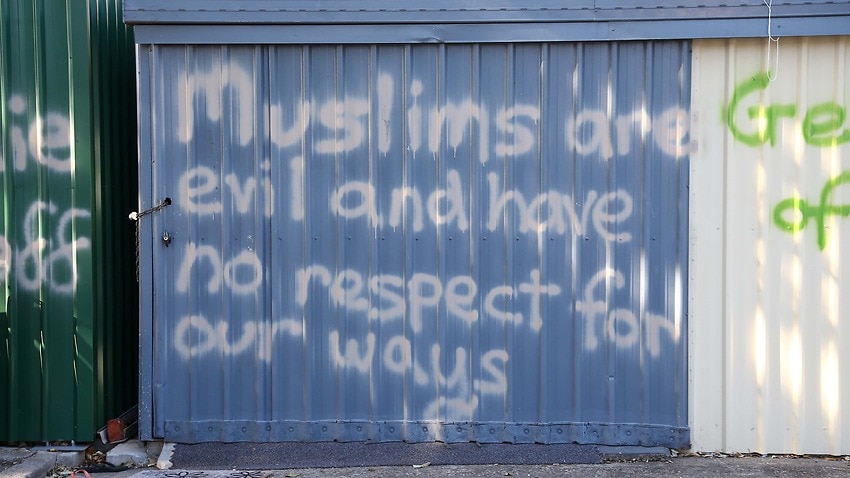 Muslims are
evil and have
no respect for
our ways
Ge
of